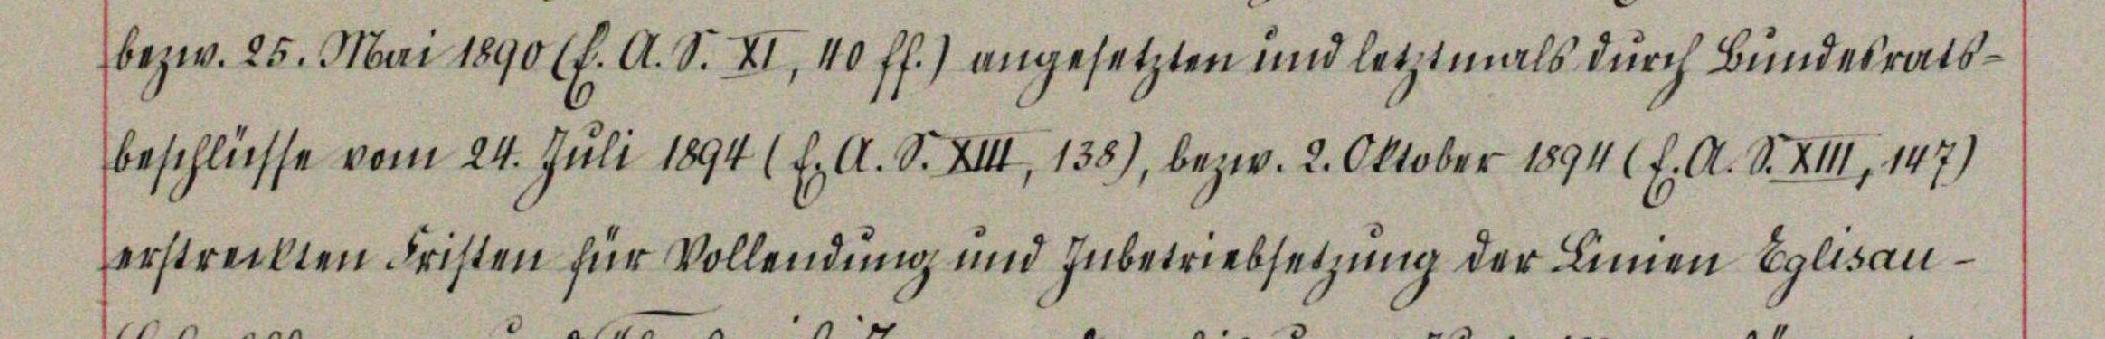 bezw. 25. Mai 1890 (E. A. S. XI, 40 ff.) angesetzten und letztmals durch Bundesrats-
beschlüsse vom 24. Juli 1894 (E. A. S. XIII, 138), bezw. 2. Oktober 1894 (E. A. S. XIII, 147)
erstreckten Fristen für Vollendung und Inbetriebsetzung der Linien Eglisau-